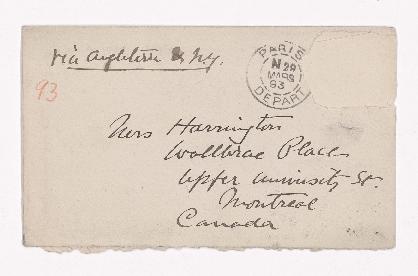 via Angleterre & N.Y.
PARIS
N 29
MARS
93
DEPART
93
Mrs Harrington
Wollbrae Place
Upper University St.
Montreal
Canada